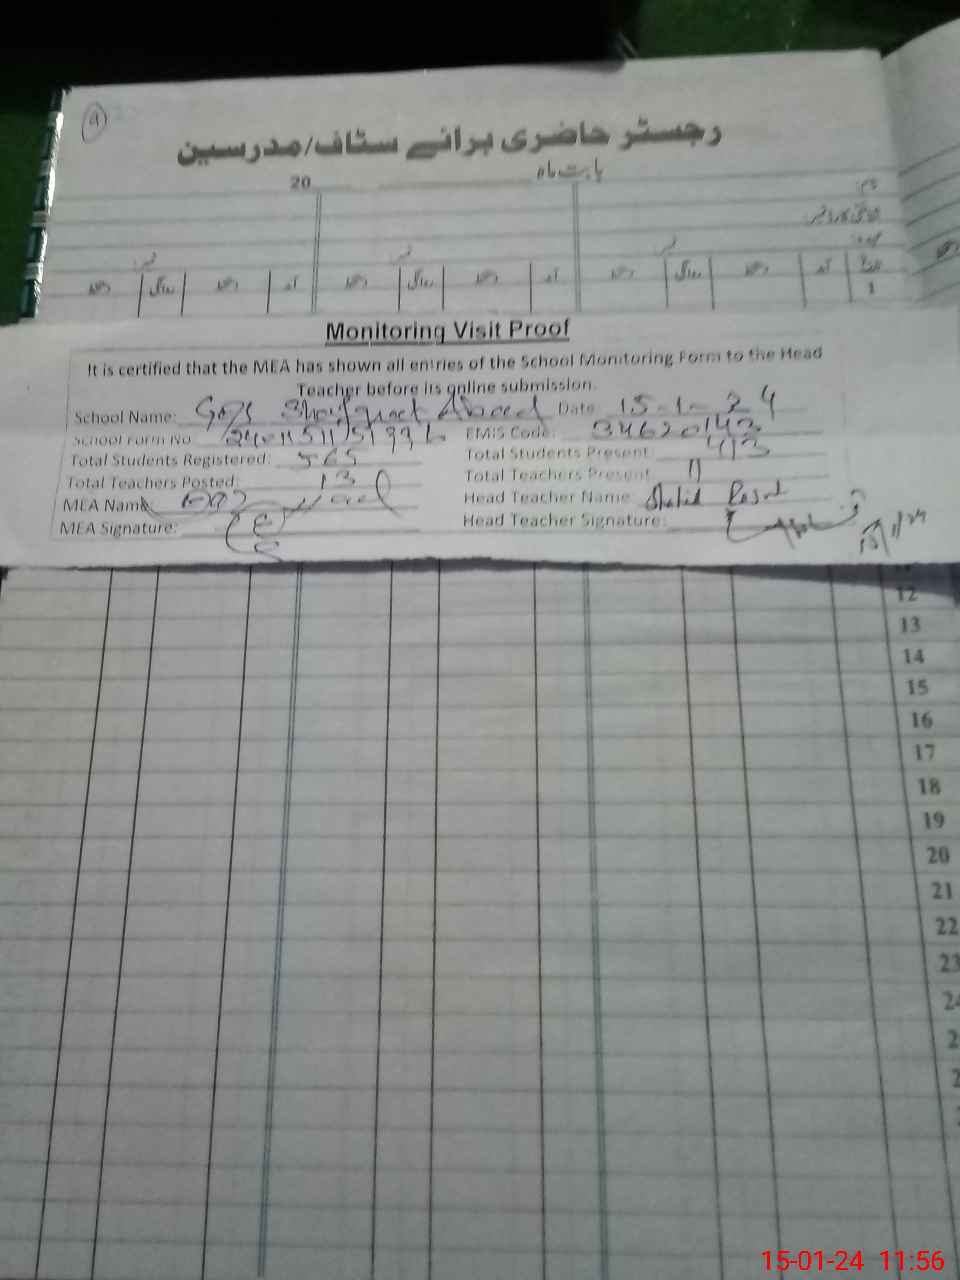 9
رجسٹر حاضری برائے سٹاف/مدرسین
بابت ماہ 20
نام:
عہدہ:
آمد دستخط روانگی دستخط آمد دستخط روانگی دستخط آمد دستخط روانگی دستخط
1
Monitoring Visit Proof
It is certified that the MEA has shown all entries of the School Monitoring Form to the Head
Teacher before its online submission.
School Name: Date 15-1-24
School Form No EMIS Code: 34620142
Total Students Registered: 565 Total Students Present: 413
Total Teachers Posted: 13 Total Teachers Present 11
MEA Name Head Teacher Name Shahid Rasul
MEA Signature: Head Teacher Signature:
15/1/24
11
12
13
14
15
16
17
18
19
20
21
22
23
24
2
2
15-01-24 11:56